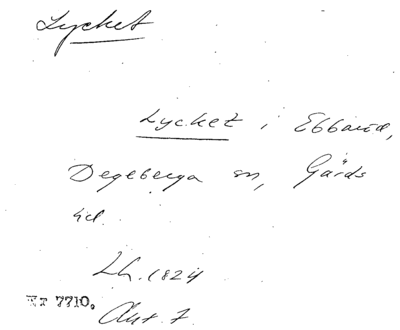 Lycket
Lycket i Ebbarid,
Degeberga sn, Gärds
hd.
Lh. 1824
Nr 7710. Akt 7